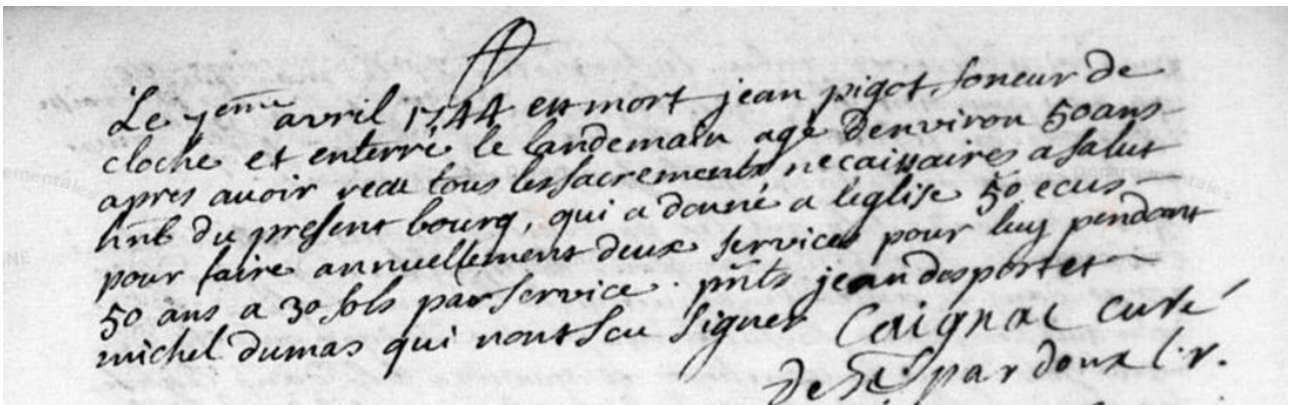 Le 7eme avril 1744 est mort jean pigot, soneur de
cloche et enterré le landemain agé denviron 50 ans
apres avoir recu tous les sacrements necaissaires a salut
hnb du present bourg, qui a donné a leglise 50 ecus
pour faire annuellement deux services pour luy pendant
50 ans a 30 sols par service. pnts jean desportes
michel dumas qui nont scu signer Caignac curé
de St. pardoux l.r.